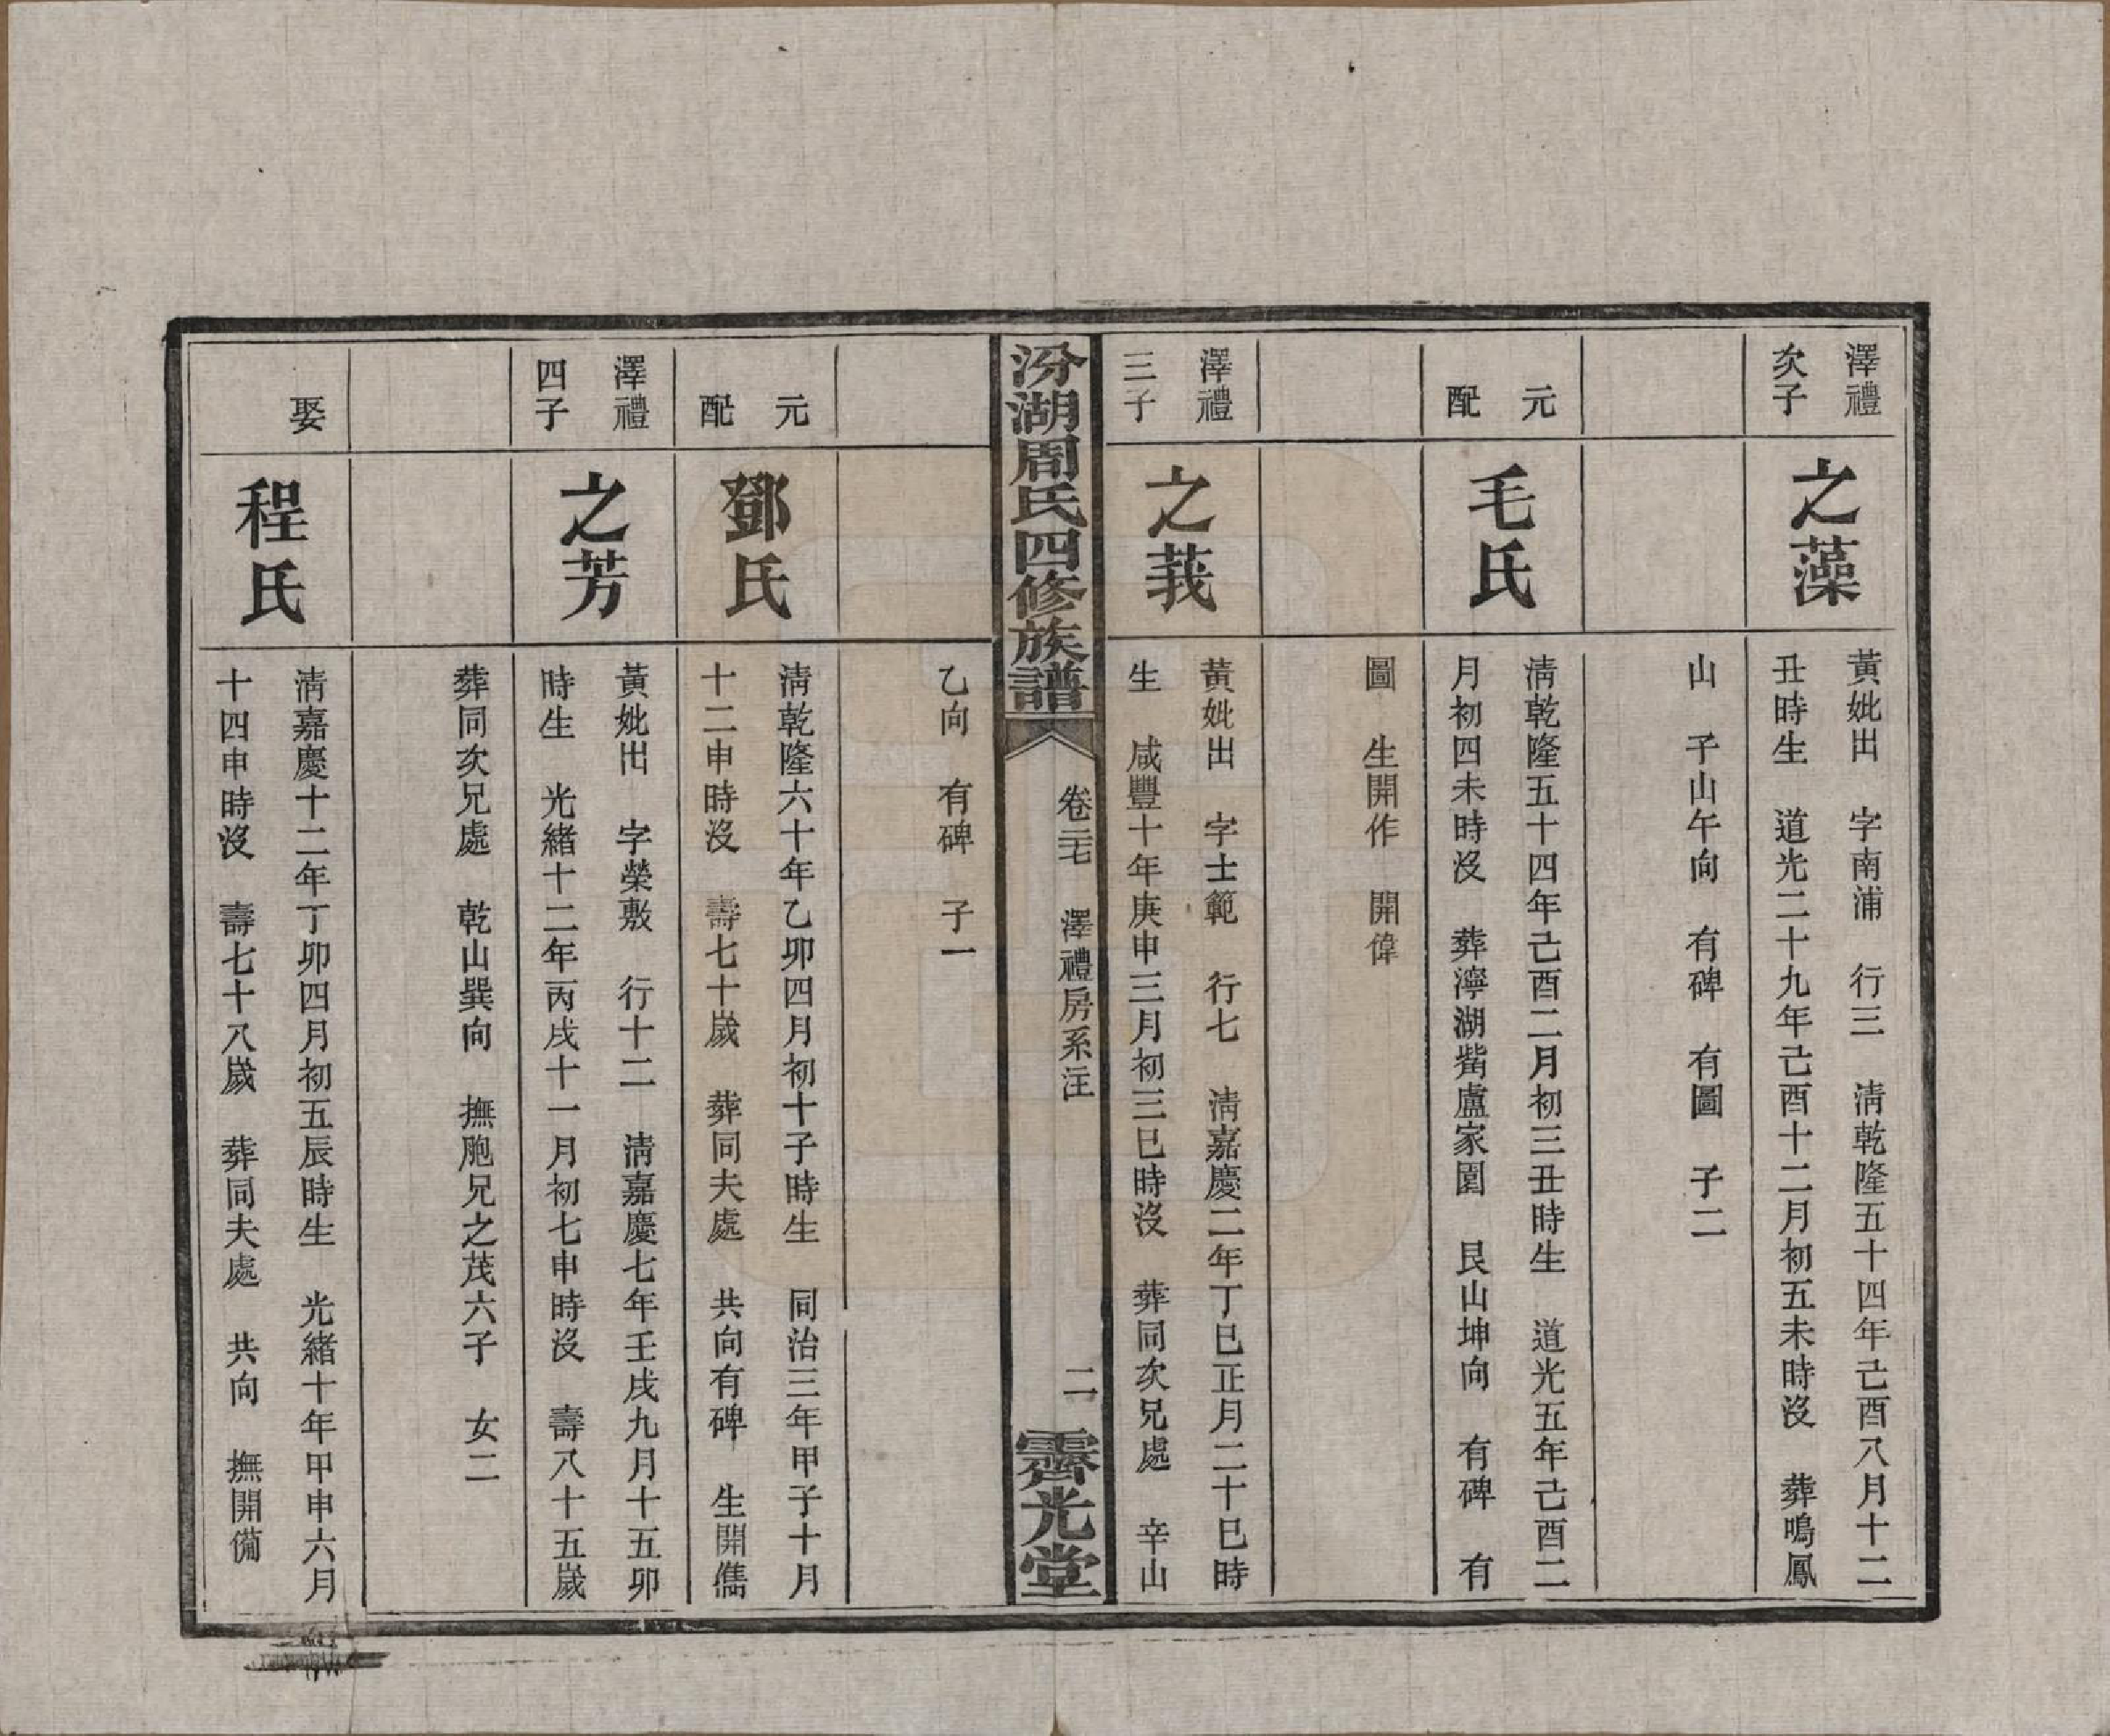 澤禮
次子
之藻
黃妣出　字南浦　行三　淸乾隆五十四年己酉八月十二
丑時生　道光二十九年己酉十二月初五未時沒　葬鳴鳳
山　子山午向　有碑　有圖　子二
元
配
毛氏
淸乾隆五十四年己酉二月初三丑時生　道光五年己酉二
月初四未時沒　葬濘湖觜盧家園　艮山坤向　有碑　有
圖　生開作　開偉
澤禮
三子
之莪
黃妣出　字士範　行七　淸嘉慶二年丁巳正月二十巳時
生　咸豐十年庚申三月初三巳時沒　葬同次兄處　辛山
汾湖周氏四修族譜
卷二十七　澤禮房系注
二
霽光堂
乙向　有碑　子一
元
配
鄧氏
淸乾隆六十年乙卯四月初十子時生　同治三年甲子十月
十二申時沒　壽七十歲　葬同夫處　共向有碑　生開儁
澤禮
四子
之芳
黃妣出　字榮敷　行十二　淸嘉慶七年壬戌九月十五卯
時生　光緒十二年丙戌十一月初七申時沒　壽八十五歲
葬同次兄處　乾山巽向　撫胞兄之茂六子　女二
娶
程氏
淸嘉慶十二年丁卯四月初五辰時生　光緒十年甲申六月
十四申時沒　壽七十八歲　葬同夫處　共向　撫開備